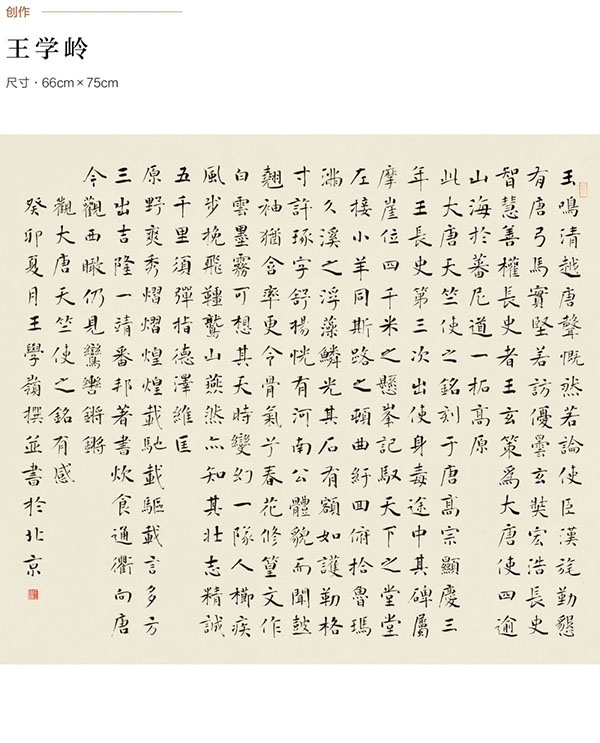 创作
王学岭
尺寸·66cm×75cm
玉鳴清越唐聲慨然若論使臣漢旄勤懇
有唐弓馬實堅若訪優曇玄奘宏浩長史
智慧善權長史者王玄策為大唐使四逾
山海於蕃尼道一拓高原
此大唐天竺使之銘刻于唐高宗顯慶三
年王長史第三次出使身毒途中其碑屬
摩崖位四千米之懸峯記馭天下之堂堂
左接小羊同斯路之頓曲紆回俯拾魯瑪
久溪之浮藻鱗光其石有額如護勒格
寸許琢字舒揚恍有河南公體貌而聞鼓
翹袖猶含率更令骨氣兮春花修篁文作
白雲墨霧可想其天時變幻一隊人櫛疾
風步挽飛韁鷲山燕然亦知其壯志精誠
五千里須彈指德澤維匡
原野爽秀熠熠煌煌載馳載驅載言多方
三出吉隆一靖番邦著書炊食通衢向唐
今觀西瞰仍見鸞轡鏘鏘
觀大唐天竺使之銘有感
癸卯夏月王學嶺撰並書於北京